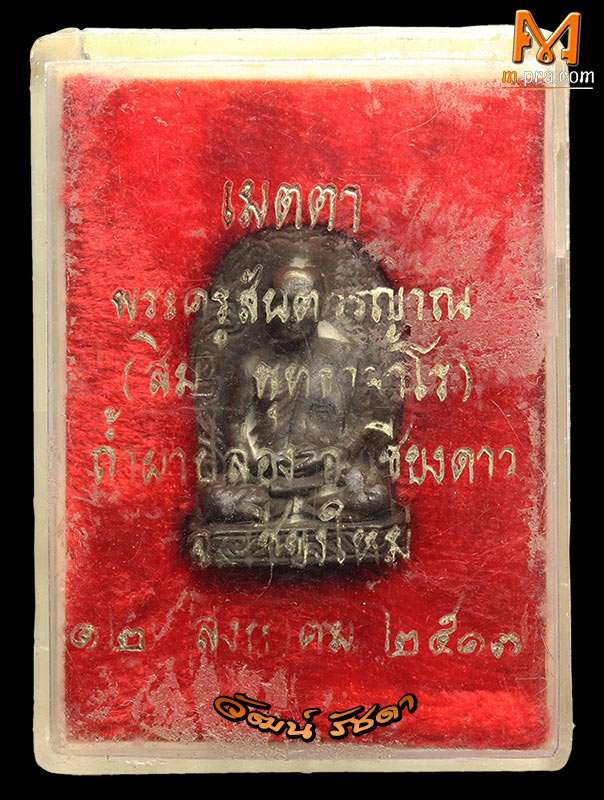 m-pra.com
เมตตา
พระครูสันตวรญาณ
(สิม พุทธาจาโร)
ถ้ำผาปล่อง อ.เชียงดาว
จ.เชียงใหม่
๑๒ สิงหาคม ๒๕๑๗
วัฒน์ รัชดา